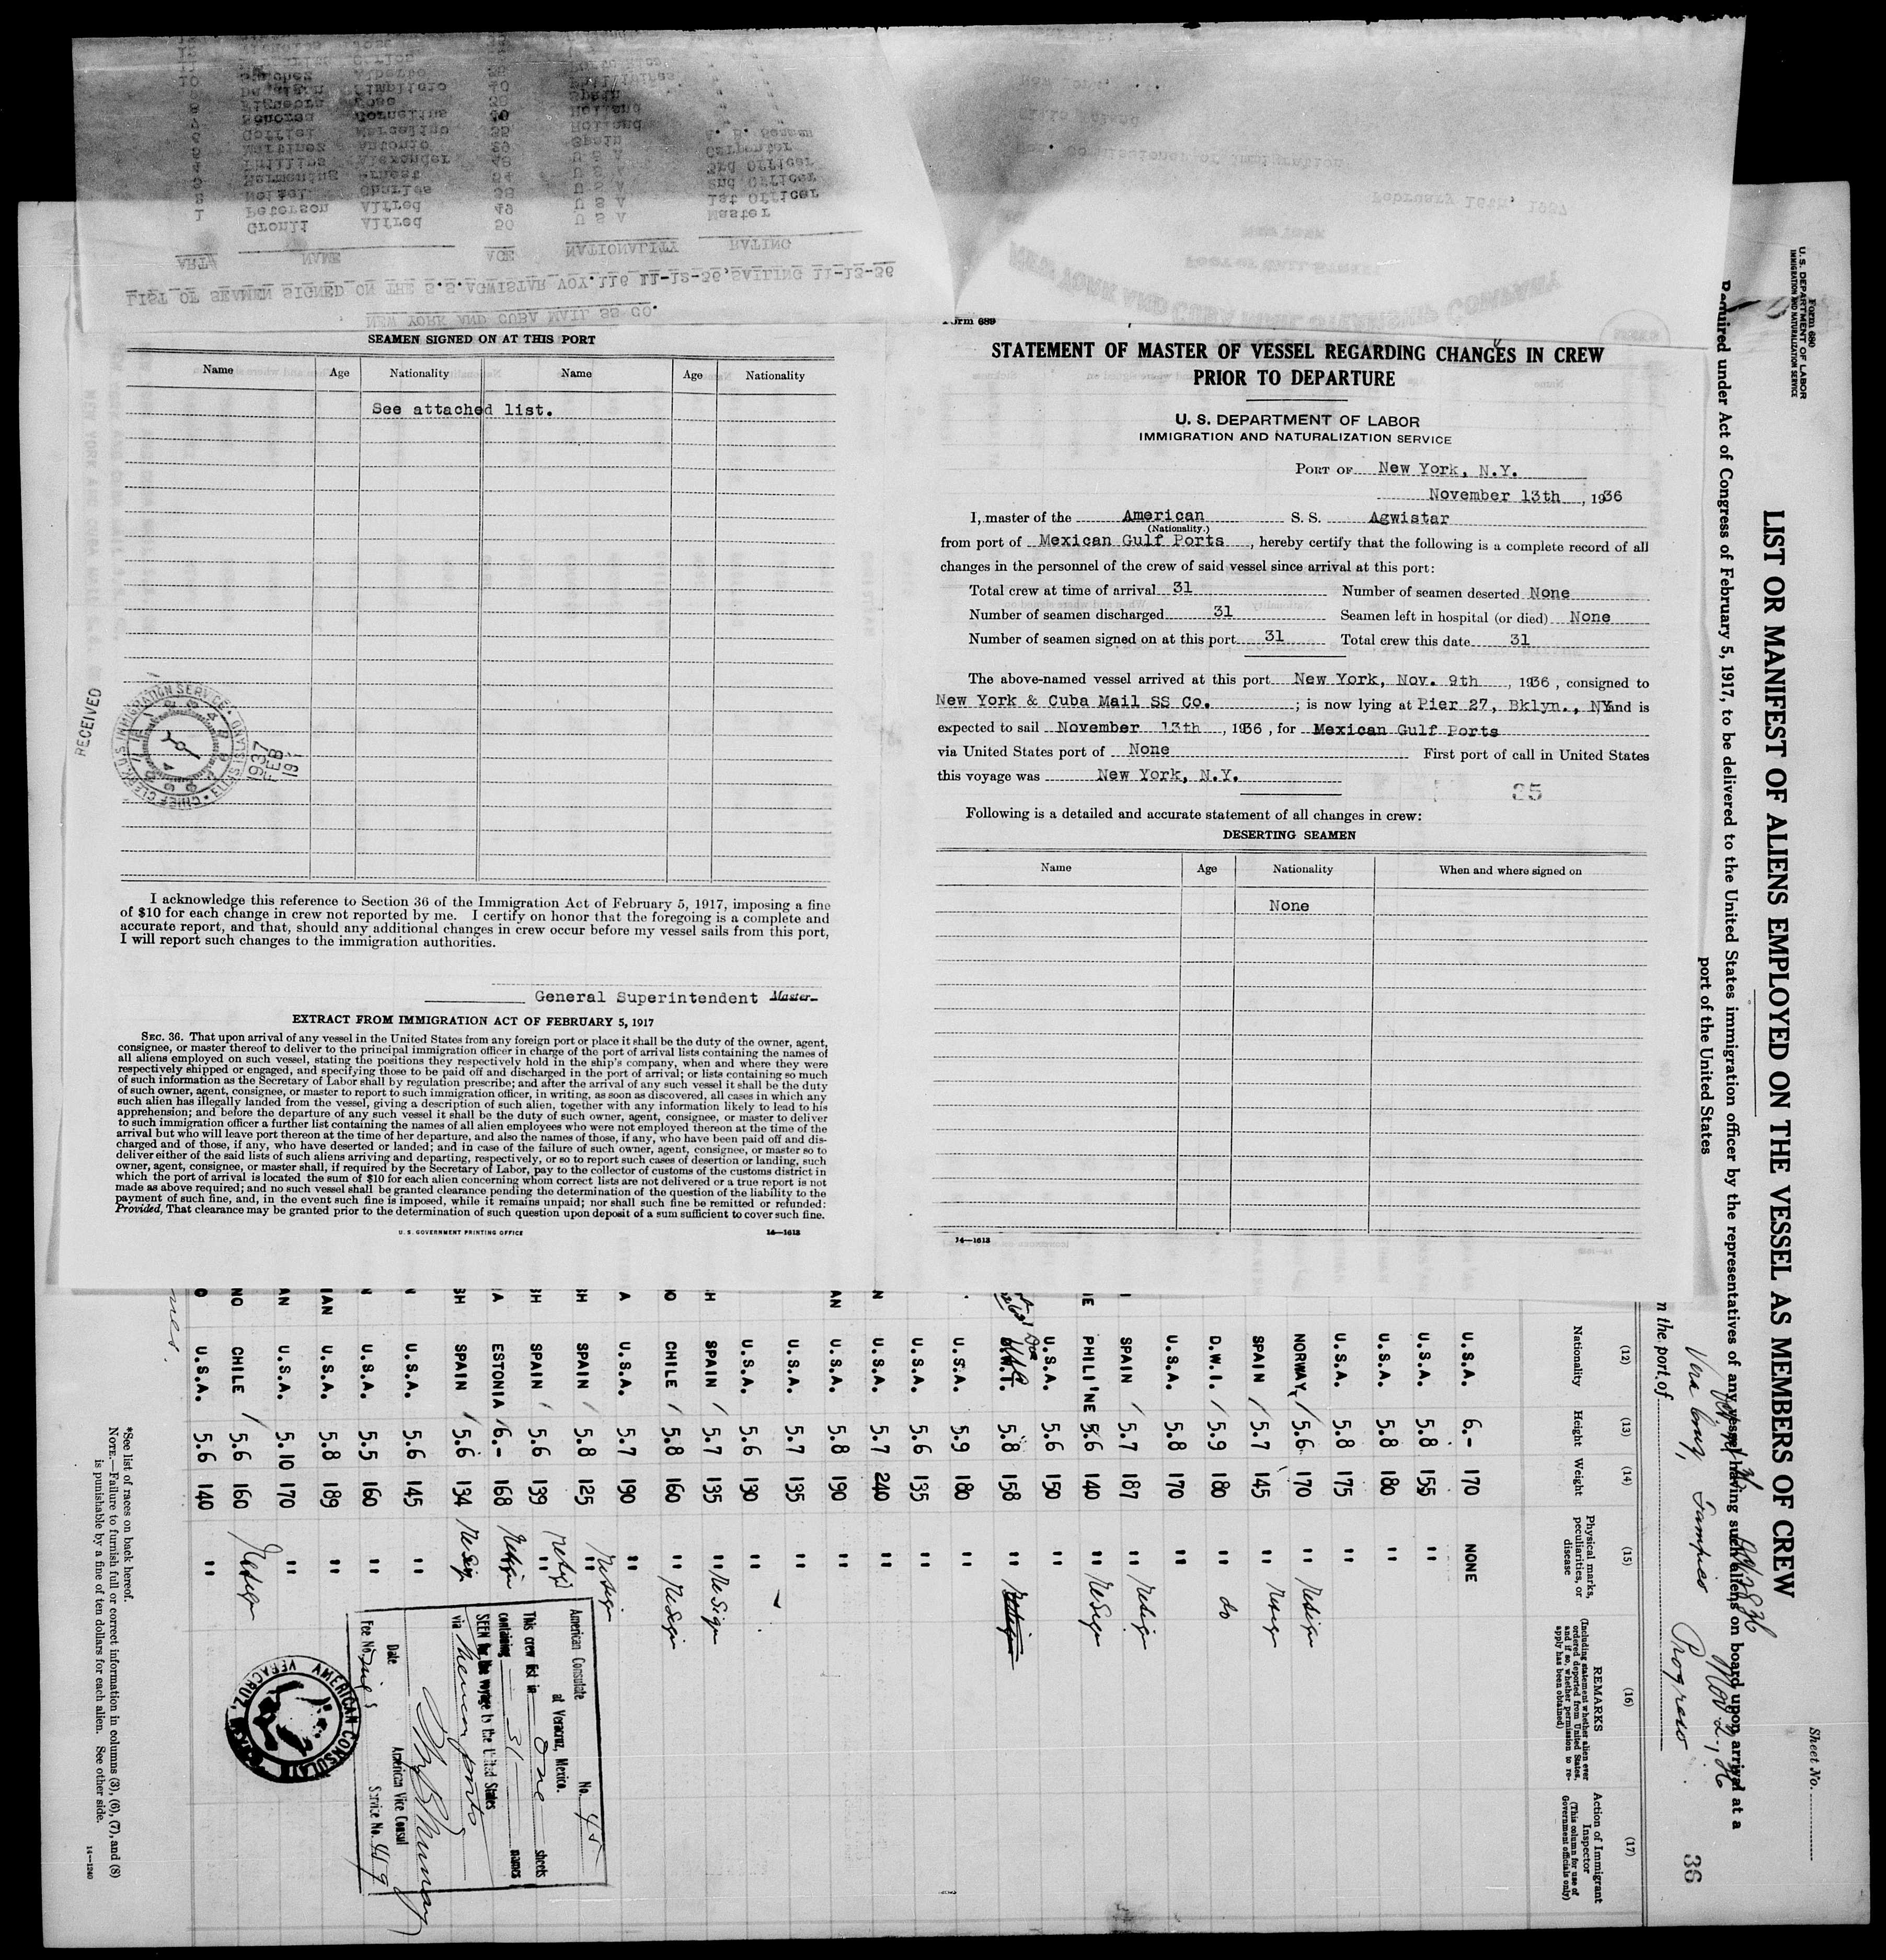 NEW YORK AND CUBA MAIL SS CO.
LIST OF SEAMEN SIGNED ON THE S.S.AGWISTAR VOY.116 11-12-36,SAILING 11-13-36
ART# NAME AGE NATIONALITY RATING
Gronli Alfred 50 U S A Master
1 Peterson Alfred 49 U S A 1st Officer
2 Charles 38 U S A 2nd Officer
3 Ernest 54 U S A 3rd Officer
4 Phillips Alexander 48 U S A Carpenter
5 Martinez Antonio 29 Spain A. B. Seaman
6 Marcelino 35
7 Cornelius 40 Holland
8 Figueroa Jose 38 Spain
10 Sanchez Alberto Porto Rico
NEW YORK AND CUBA MAIL STEAMSHIP COMPANY
FOOT OF WALL STREET
NEW YORK
February 16th, 1937
Commissioner of Immigration
Ellis Island
New York,
SEAMEN SIGNED ON AT THIS PORT
Name Age Nationality Name Age Nationality
See attached list.
RECEIVED
U.S. IMMIGRATION SERVICE
CHIEF CLERK
1937
FEB
19
I acknowledge this reference to Section 36 of the Immigration Act of February 5, 1917, imposing a fine
of $10 for each change in crew not reported by me. I certify on honor that the foregoing is a complete and
accurate report, and that, should any additional changes in crew occur before my vessel sails from this port,
I will report such changes to the immigration authorities.
General Superintendent Master
EXTRACT FROM IMMIGRATION ACT OF FEBRUARY 5, 1917
SEC. 36. That upon arrival of any vessel in the United States from any foreign port or place it shall be the duty of the owner, agent,
consignee, or master thereof to deliver to the principal immigration officer in charge of the port of arrival lists containing the names of
all aliens employed on such vessel, stating the positions they respectively hold in the ship's company, when and where they were
respectively shipped or engaged, and specifying those to be paid off and discharged in the port of arrival; or lists containing so much
of such information as the Secretary of Labor shall by regulation prescribe; and after the arrival of any such vessel it shall be the duty
of such owner, agent, consignee, or master to report to such immigration officer, in writing, as soon as discovered, all cases in which any
such alien has illegally landed from the vessel, giving a description of such alien, together with any information likely to lead to his
apprehension; and before the departure of any such vessel it shall be the duty of such owner, agent, consignee, or master to deliver
to such immigration officer a further list containing the names of all alien employees who were not employed thereon at the time of the
arrival but who will leave port thereon at the time of her departure, and also the names of those, if any, who have been paid off and dis-
charged and of those, if any, who have deserted or landed; and in case of the failure of such owner, agent, consignee, or master so to
deliver either of the said lists of such aliens arriving and departing, respectively, or so to report such cases of desertion or landing, such
owner, agent, consignee, or master shall, if required by the Secretary of Labor, pay to the collector of customs of the customs district in
which the port of arrival is located the sum of $10 for each alien concerning whom correct lists are not delivered or a true report is not
made as above required; and no such vessel shall be granted clearance pending the determination of the question of the liability to the
payment of such fine, and, in the event such fine is imposed, while it remains unpaid; nor shall such fine be remitted or refunded:
Provided, That clearance may be granted prior to the determination of such question upon deposit of a sum sufficient to cover such fine.
U. S. GOVERNMENT PRINTING OFFICE 14—1613
Form 689
STATEMENT OF MASTER OF VESSEL REGARDING CHANGES IN CREW
PRIOR TO DEPARTURE
U. S. DEPARTMENT OF LABOR
IMMIGRATION AND NATURALIZATION SERVICE
PORT OF New York, N.Y.
November 13th, 1936
I, master of the American S. S. Agwistar
(Nationality.)
from port of Mexican Gulf Ports, hereby certify that the following is a complete record of all
changes in the personnel of the crew of said vessel since arrival at this port:
Total crew at time of arrival 31 Number of seamen deserted None
Number of seamen discharged 31 Seamen left in hospital (or died) None
Number of seamen signed on at this port 31 Total crew this date 31
The above-named vessel arrived at this port New York, Nov. 9th, 1936, consigned to
New York & Cuba Mail SS Co. ; is now lying at Pier 27, Bklyn., NY and is
expected to sail November 13th, 1936, for Mexican Gulf Ports
via United States port of None First port of call in United States
this voyage was New York, N.Y.
35
Following is a detailed and accurate statement of all changes in crew:
DESERTING SEAMEN
Name Age Nationality When and where signed on
None
14—1613
Form 680
U. S. DEPARTMENT OF LABOR
IMMIGRATION AND NATURALIZATION SERVICE
Sheet No.
LIST OR MANIFEST OF ALIENS EMPLOYED ON THE VESSEL AS MEMBERS OF CREW
Required under Act of Congress of February 5, 1917, to be delivered to the United States immigration officer by the representatives of any vessel having such aliens on board upon arrival at a
port of the United States
n the port of Vera Cruz, Tampico Progreso
Nov 2-, 36
36
(12) (13) (14) (15) (16) (17)
Nationality Height Weight Physical marks, peculiarities, or disease REMARKS (Including statement whether alien ever ordered deported from United States, and if so, whether permission to re-apply has been obtained) Action of Immigrant Inspector (This column for use of Government officials only)
U.S.A. 6.- 170 NONE
U.S.A. 5.8 155 "
U.S.A. 5.8 180 "
U.S.A. 5.8 175 "
NORWAY 5.6 170 "
SPAIN 5.7 145 "
D.W.I. 5.9 180 " do
U.S.A. 5.8 170 "
SPAIN 5.7 187 "
PHILI'NE 5.6 140 "
U.S.A. 5.6 150 "
D.W.I. 5.8 158 "
U.S.A. 5.9 180 "
U.S.A. 5.6 135 "
U.S.A. 5.7 240 "
U.S.A. 5.8 190 "
U.S.A. 5.7 135 "
U.S.A. 5.6 130 "
SPAIN 5.7 135 "
CHILE 5.8 160 "
U.S.A. 5.7 190 "
SPAIN 5.8 125 "
SPAIN 5.6 139 "
ESTONIA 6.- 168 "
SPAIN 5.6 134
U.S.A. 5.6 145 "
U.S.A. 5.5 160 "
U.S.A. 5.8 189 "
U.S.A. 5.10 170 "
CHILE 5.6 160
U.S.A. 5.6 140 "
American Consulate No. 45
at Veracruz, Mexico.
This crew list in One sheets
containing 31 names
SEEN for the voyage to the United States
via Mexican ports
American Vice Consul
Date
Fee No. Service No. 459
AMERICAN CONSULATE
VERACRUZ,
*See list of races on back hereof.
NOTE.—Failure to furnish full or correct information in columns (3), (6), (7), and (8)
is punishable by a fine of ten dollars for each alien. See other side.
14—1240